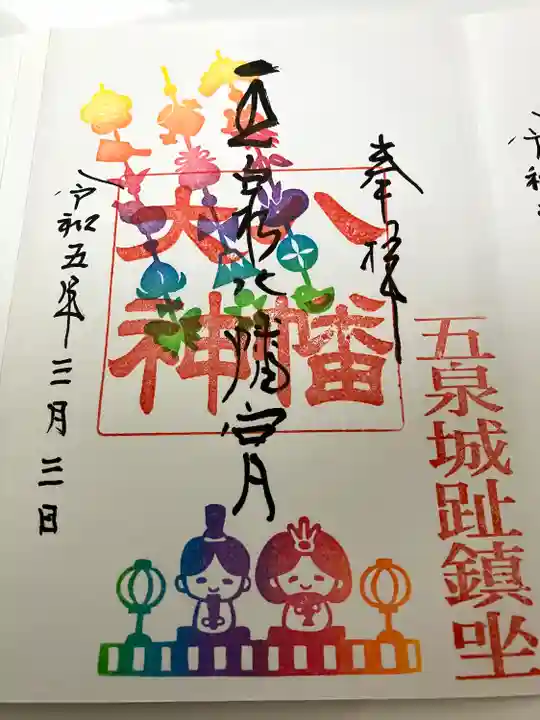 奉拝
五泉城趾鎮坐
八幡
大神
五泉八幡宮
令和五年三月三日